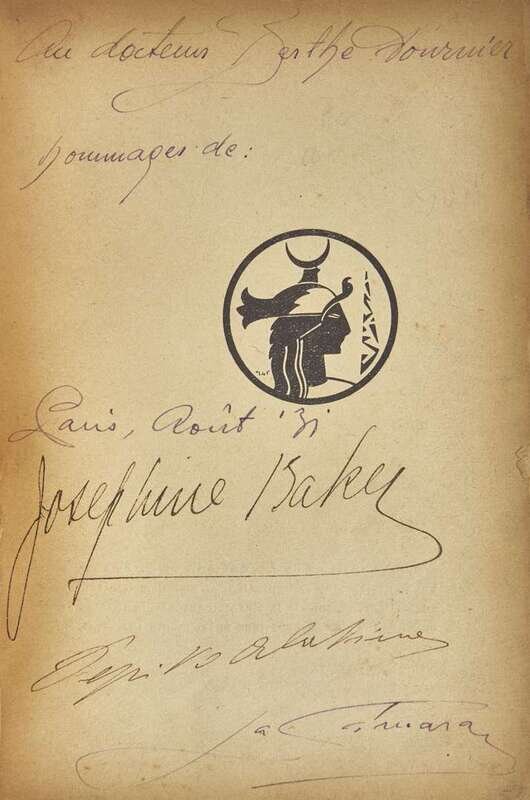 Au docteur Berthe Fournier
Hommages de:
Paris, Août '31
Josephine Baker
Pepito Abatino
La Camara